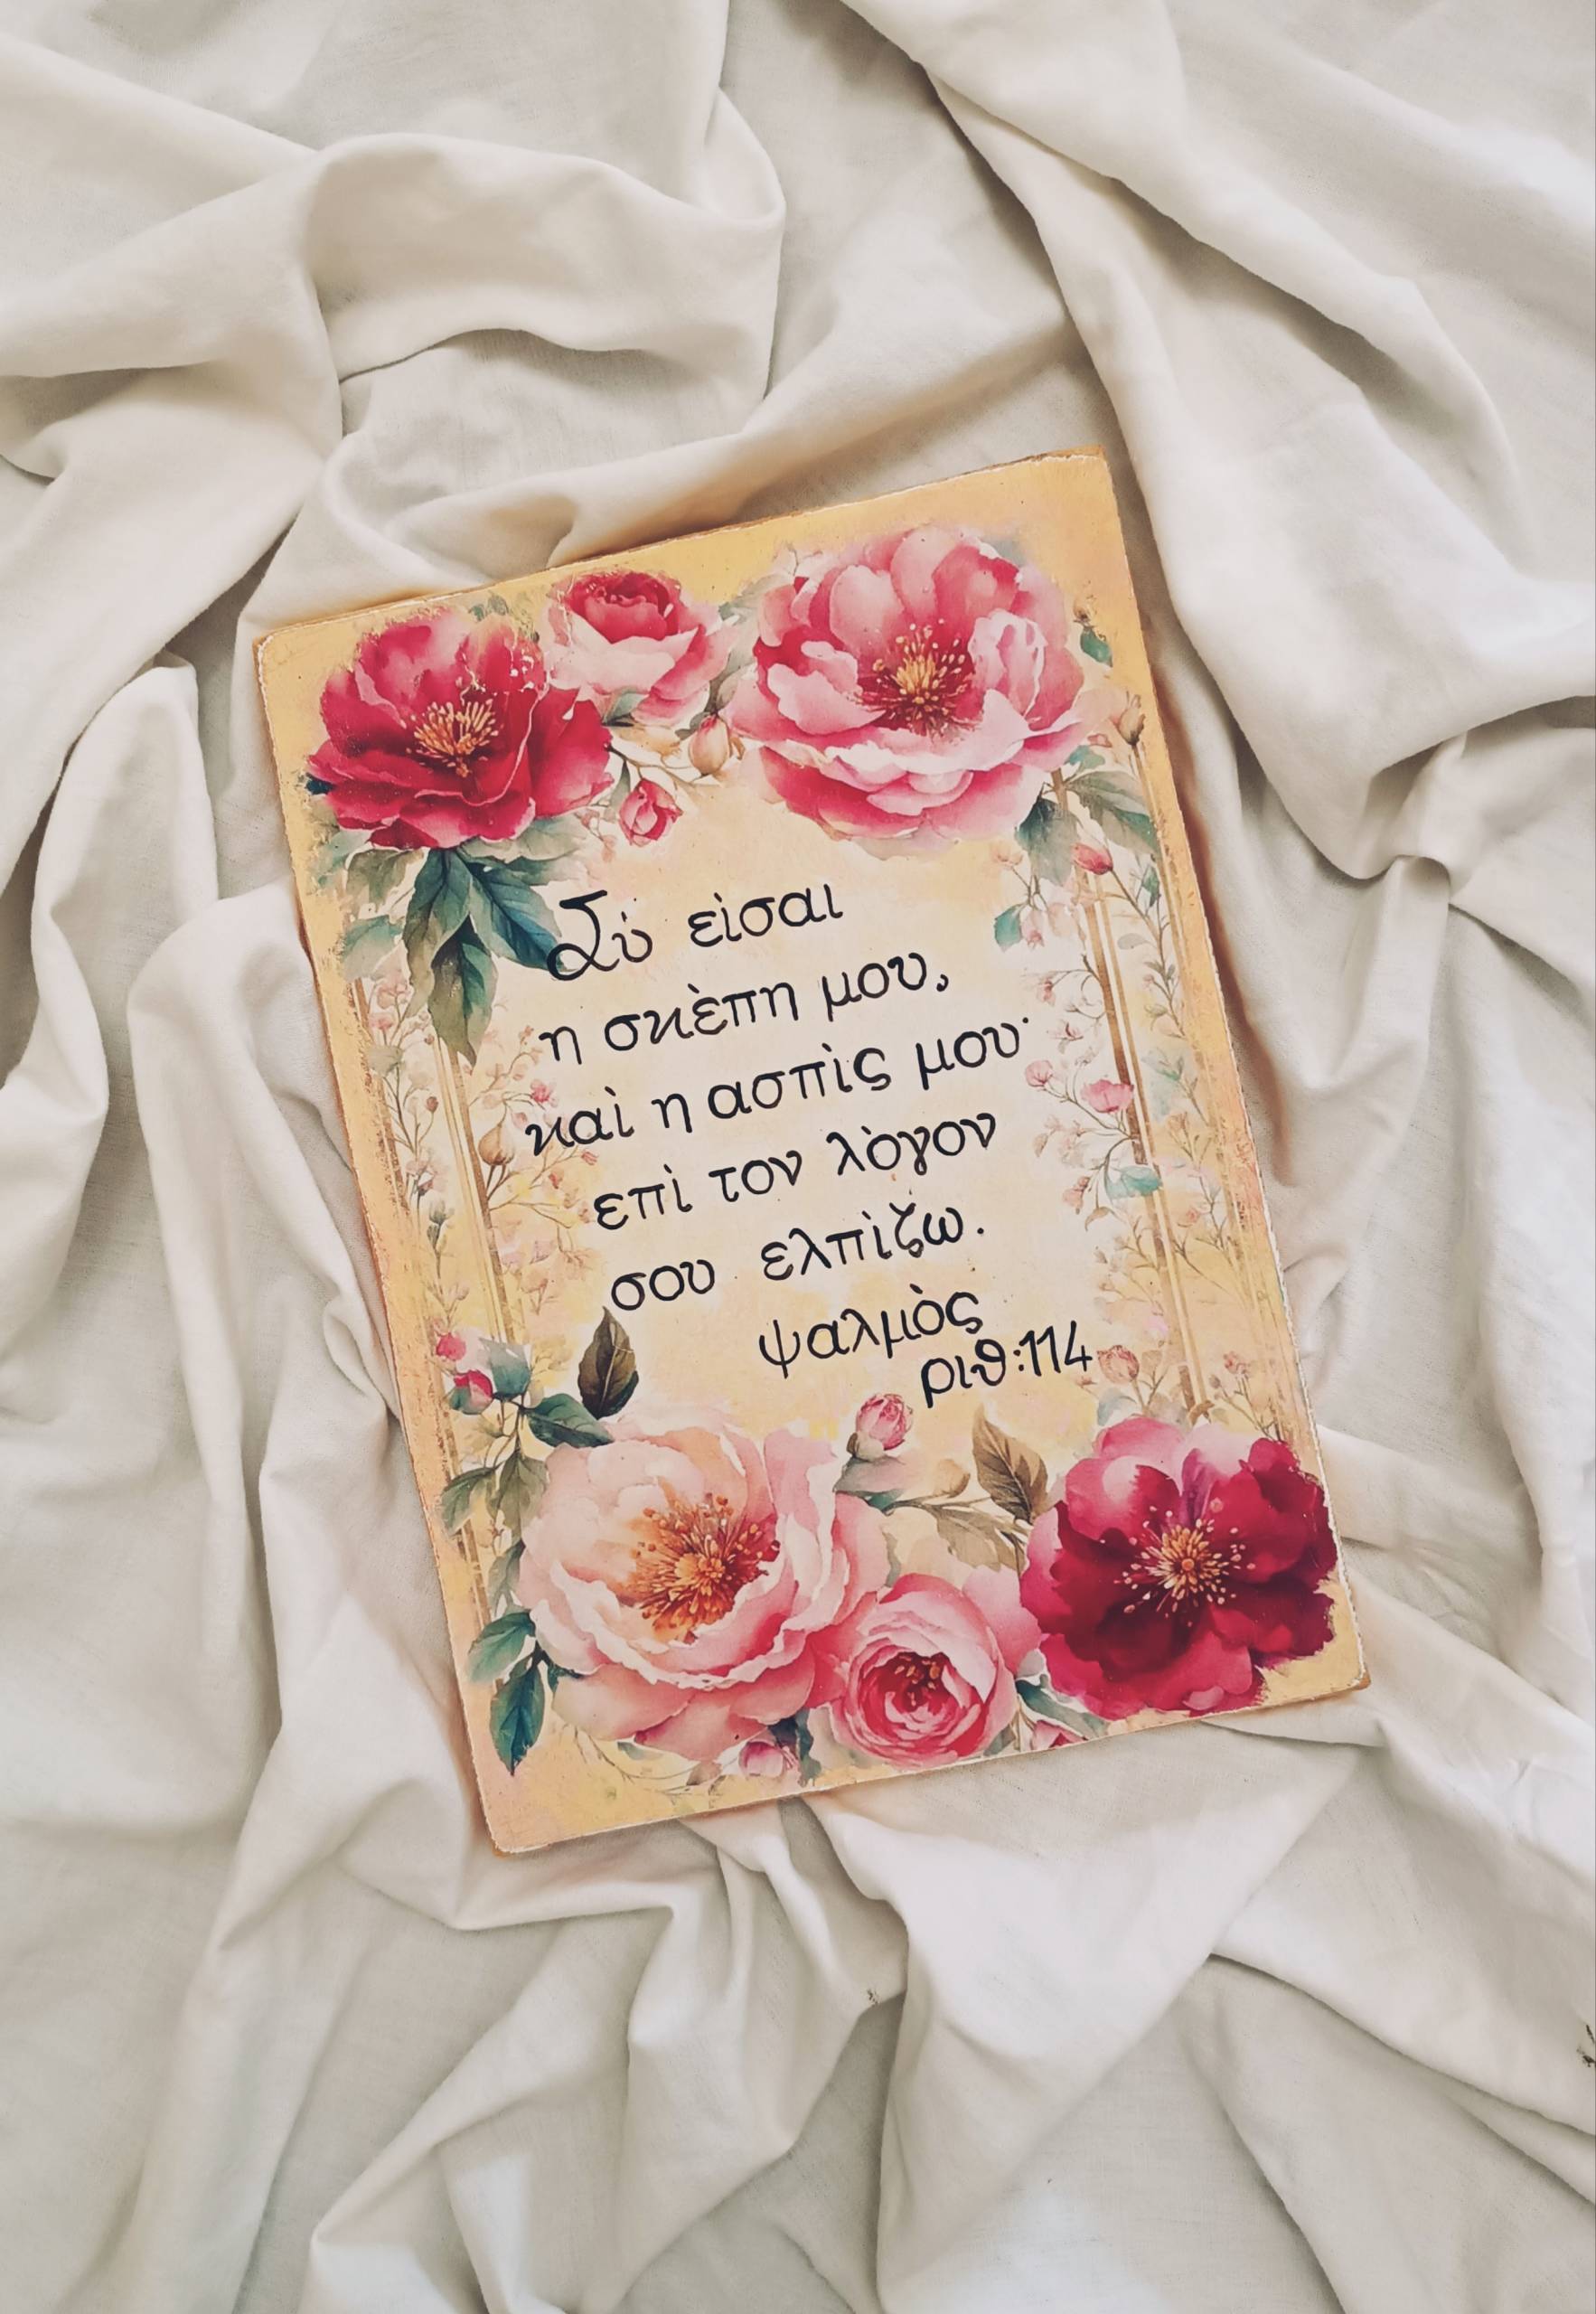 Σὺ εὶσαι
η σκὲπη μου,
καὶ η ασπὶς μου·
επὶ τον λὸγον
σου ελπὶζω.
ψαλμὸς
ριθ:114